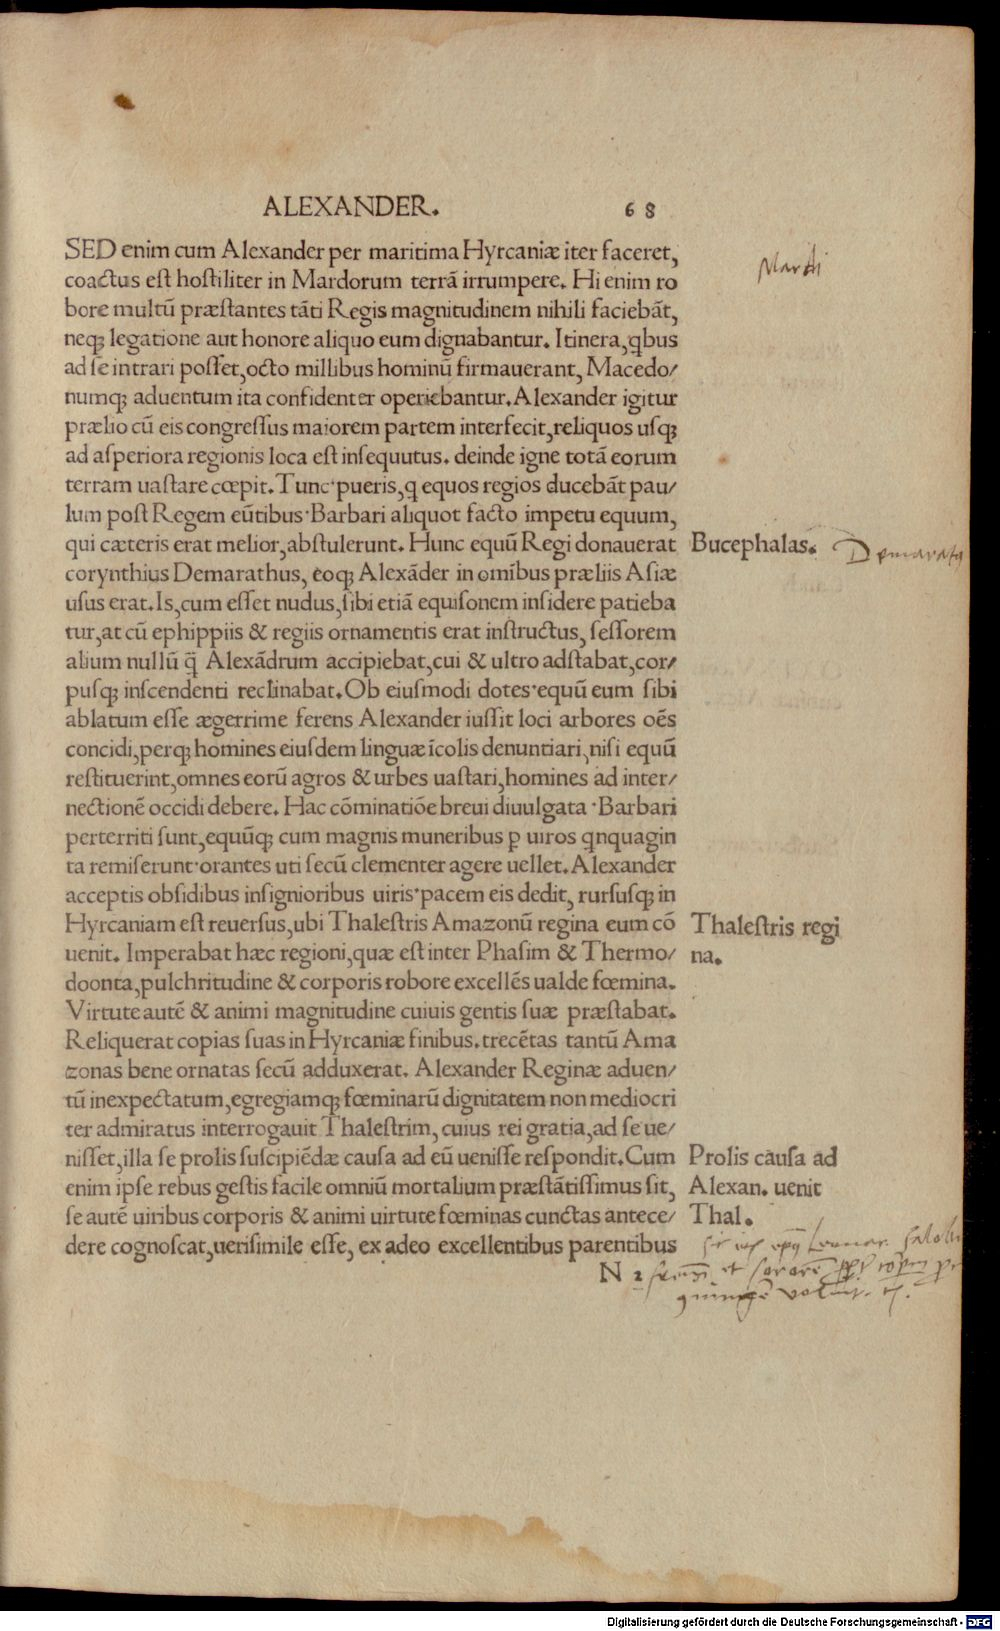 ALEXANDER. 68
SED enim cum Alexander per maritima Hyrcaniæ iter faceret,
coactus est hostiliter in Mardorum terrā irrumpere. Hi enim ro
bore multū præstantes tāti Regis magnitudinem nihili faciebāt,
neqꝫ legatione aut honore aliquo eum dignabantur. Itinera, qbus
ad se intrari posset, octo millibus hominū firmauerant, Macedo/
numqꝫ aduentum ita confidenter operiebantur. Alexander igitur
prælio cū eis congressus maiorem partem interfecit, reliquos usqꝫ
ad asperiora regionis loca est insequutus. deinde igne totā eorum
terram uastare cœpit. Tunc· pueris, q equos regios ducebāt pau/
lum post Regem eūtibus· Barbari aliquot facto impetu equum,
qui cæteris erat melior, abstulerunt. Hunc equū Regi donauerat
corynthius Demarathus, eoqꝫ Alexāder in omībus præliis Asiæ
usus erat. Is, cum esset nudus, sibi etiā equisonem insidere patieba
tur, at cū ephippiis & regiis ornamentis erat instructus, sessorem
alium nullū q̄ Alexādrum accipiebat, cui & ultro adstabat, cor/
pusqꝫ inscendenti reclinabat. Ob eiusmodi dotes· equū eum sibi
ablatum esse ægerrime ferens Alexander iussit loci arbores oēs
concidi, perqꝫ homines eiusdem linguæ īcolis denuntiari, nisi equū
restituerint, omnes eorū agros & urbes uastari, homines ad inter/
nectionē occidi debere. Hac cōminatiōe breui diuulgata· Barbari
perterriti sunt, equūqꝫ cum magnis muneribus ꝑ uiros qnquagin
ta remiserunt· orantes uti secū clementer agere uellet. Alexander
acceptis obsidibus insignioribus uiris· pacem eis dedit, rursusqꝫ in
Hyrcaniam est reuersus, ubi Thalestris Amazonū regina eum cō
uenit. Imperabat hæc regioni, quæ est inter Phasim & Thermo/
doonta, pulchritudine & corporis robore excellēs ualde fœmina.
Virtute autē & animi magnitudine cuiuis gentis suæ præstabat.
Reliquerat copias suas in Hyrcaniæ finibus. trecētas tantū Ama
zonas bene ornatas secū adduxerat. Alexander Reginæ aduen/
tū inexpectatum, egregiamqꝫ fœminarū dignitatem non mediocri
ter admiratus interrogauit Thalestrim, cuius rei gratia, ad se ue/
nisset, illa se prolis suscipiēdæ causa ad eū uenisse respondit. Cum
enim ipse rebus gestis facile omniū mortalium præstātissimus sit,
se autē uiribus corporis & animi uirtute fœminas cunctas antece/
dere cognoscat, uerisimile esse, ex adeo excellentibus parentibus
N 2
Mardi
Bucephalas.
Demaratus
Thalestris regi
na.
Prolis causa ad
Alexan. uenit
Thal.